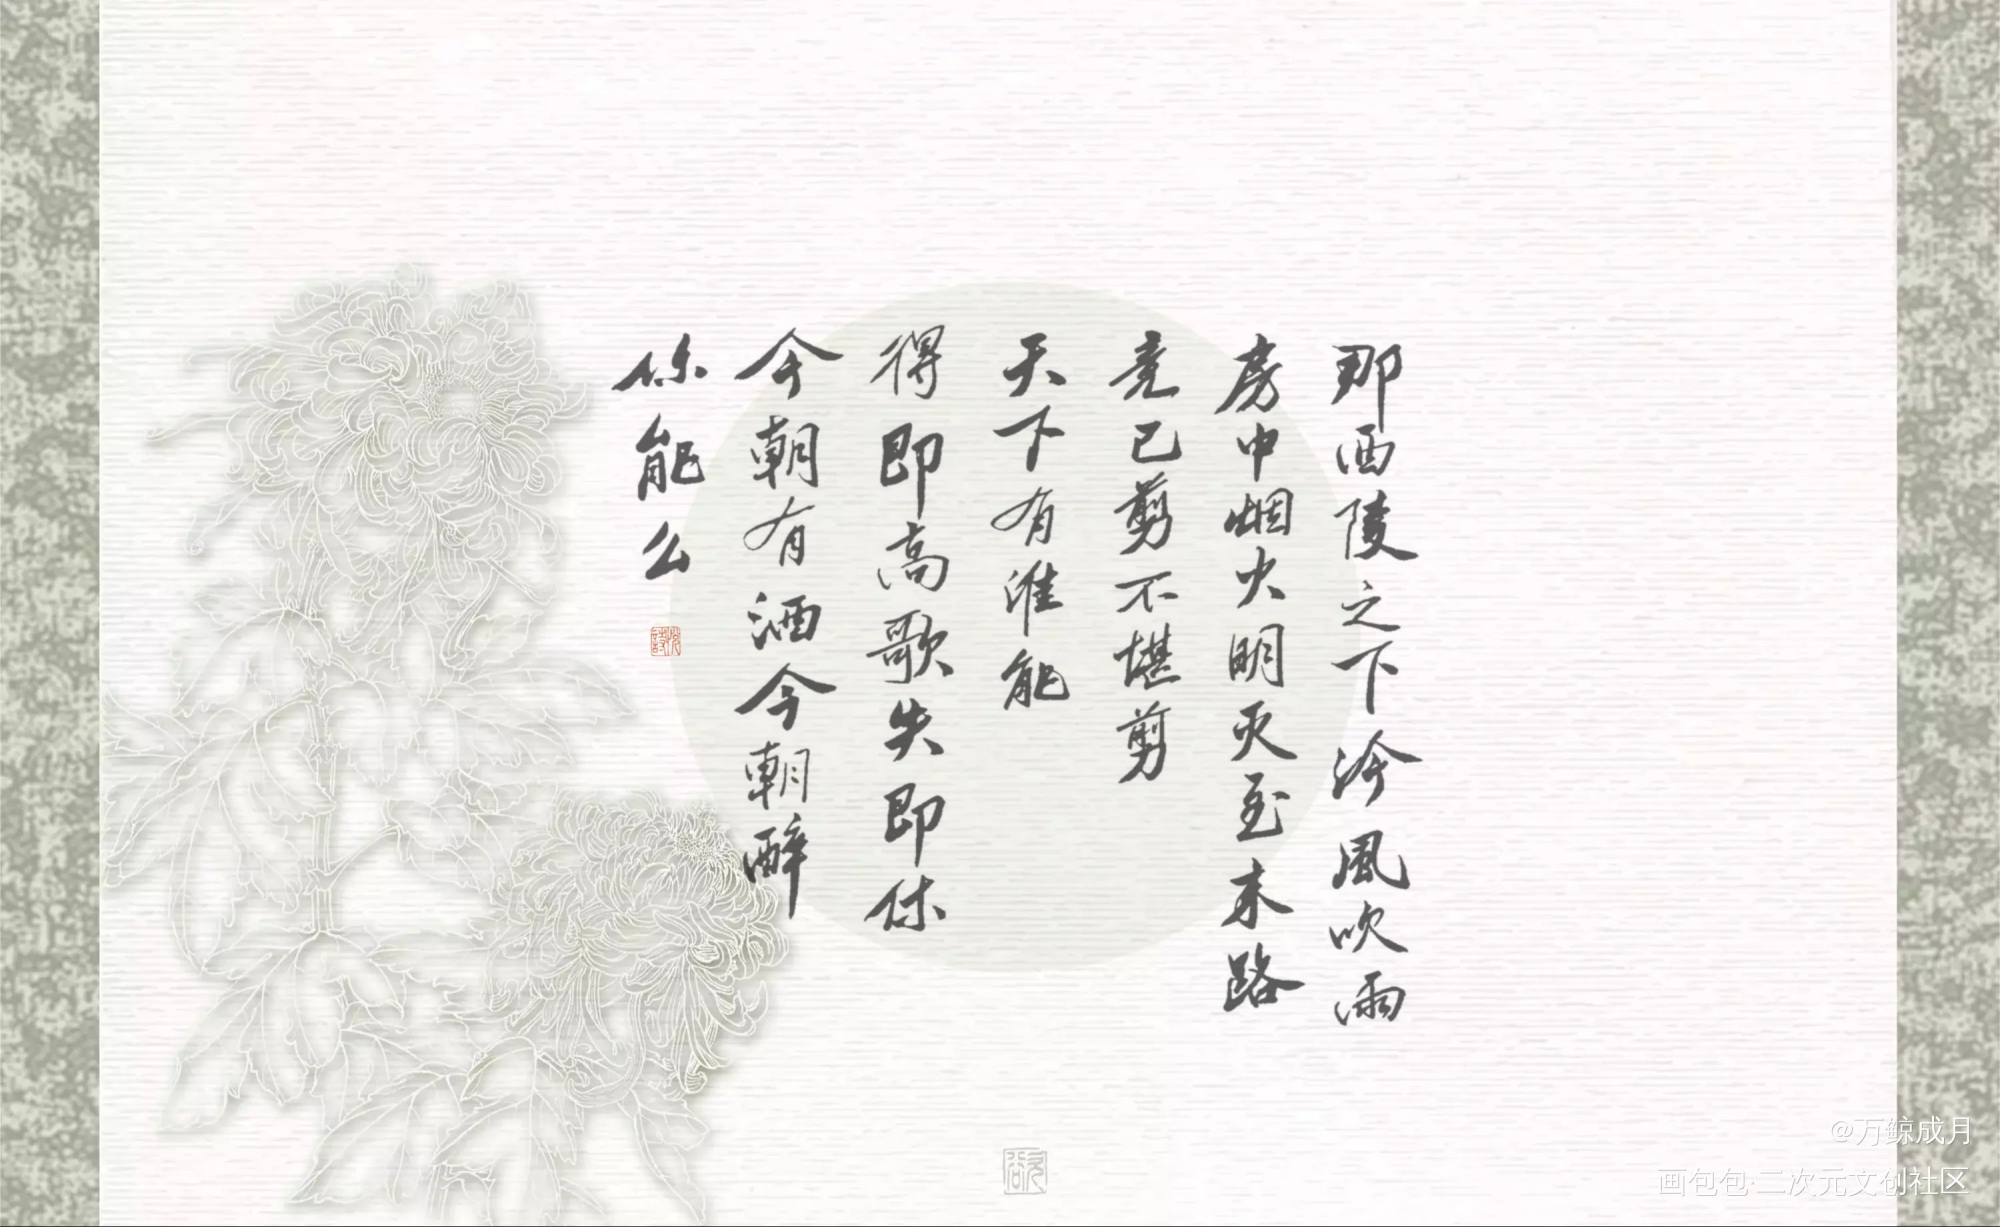 那西陵之下冷風吹雨
房中烟火明灭至末路
竟已剪不堪剪
天下有谁能
得即高歌失即休
今朝有酒今朝醉
你能么
@万鲸成月
画包包·二次元文创社区